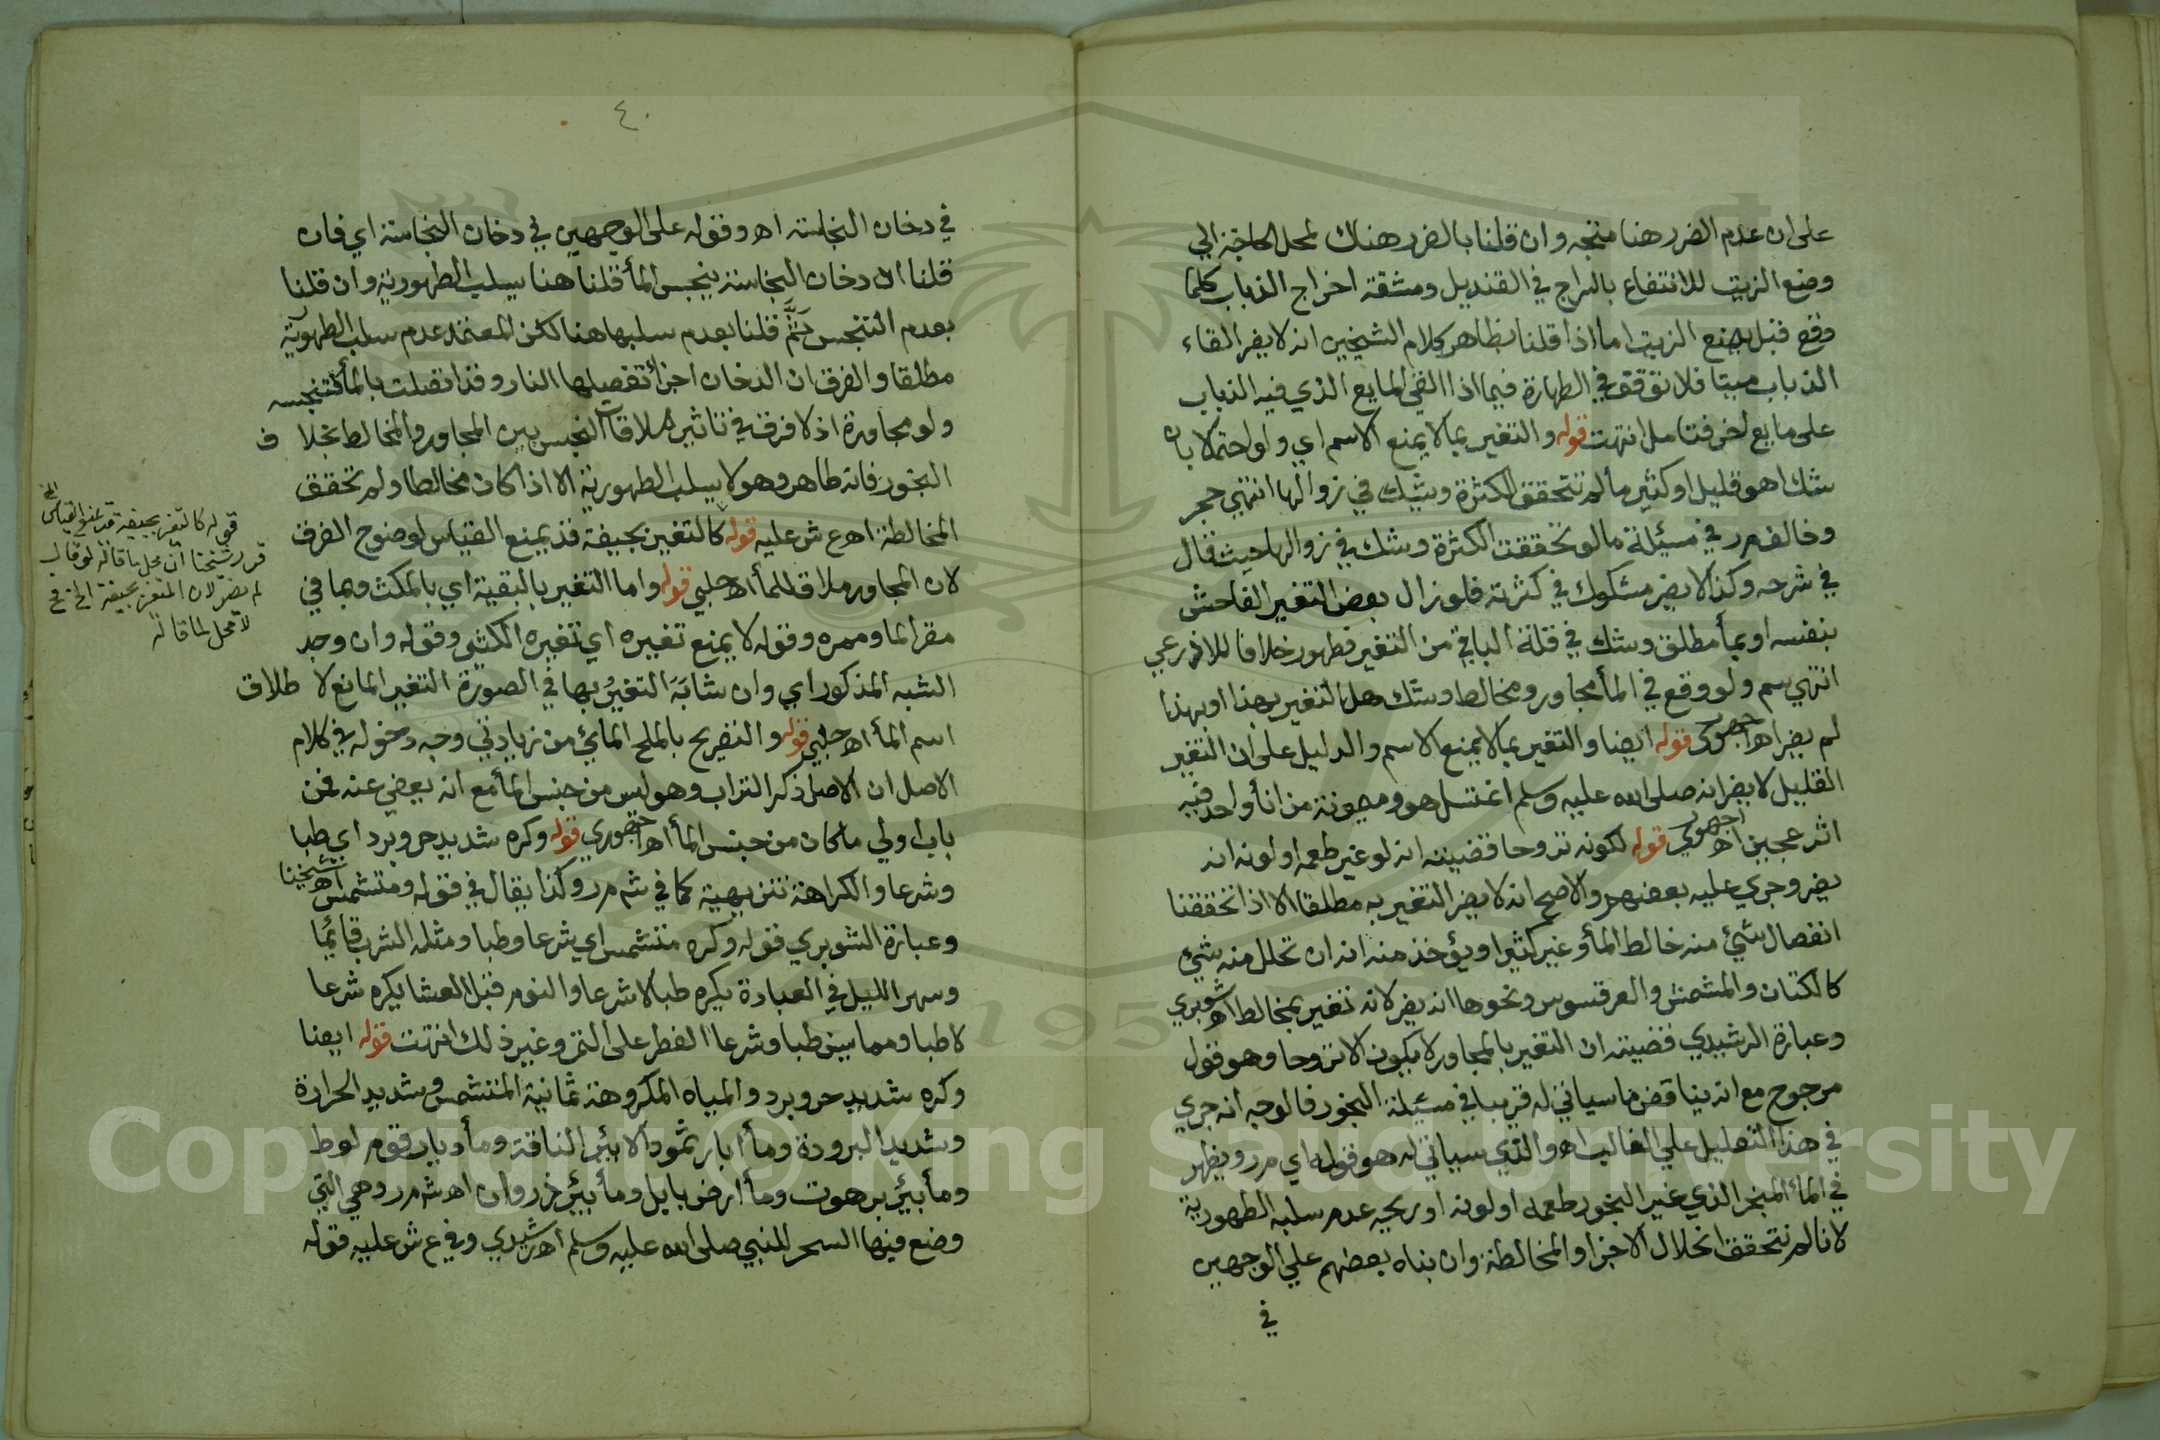 على ان عدم الضرر هنا متجه وان قلنا بالضرر هناك لمحل الحاجة الي
وضع الزيت للانتفاع بالسراج في القنديل ومشقة اخراج الذباب كلما
وقع قبل وضع الزيت اما اذا قلنا بظاهر كلام الشيخين انه لا يضر القاء
الذباب ميتا فلا نوقف في الطهارة فيما اذا القي المايع الذي فيه الذباب
على مايع اخر فتامل انتهت قوله والتغير بما لا يمنع الاسم اي ولو احتمالا بان
شك اهو قليل او كثير ما لم نتحقق الكثرة وشك في زوالها انتهي حجر
وخالفه م ر في مسئلة ما لو تحققت الكثرة وشك في زوالها حيث قال
في شرحه وكذا لا يضر مشكوك في كثرته فلو زال بعض التغير الفاحش
بنفسه او بمأ مطلق وشك في قلة الباقي من التغير فطهور خلافا للاذرعي
انتهي سم ولو وقع في المأ مجاور ومخالط وشك هل التغير بهذا او بهذا
لم يضر اه اجهوري قوله ايضا والتغير بما لا يمنع الاسم والدليل على ان التغير
القليل لا يضر انه صلى الله عليه وسلم اغتسل هو وميمونة من انأ واحد فيه
اثر عجين اه اجهوري قوله لكونه تروحا قضيته انه لو غير طعمه او لونه انه
يضر وجري عليه بعضهم والاصح انه لا يضر التغير به مطلقا الا اذا تحققنا
انفصال شئ منه خالط المأ وغير كثيرا ويؤخذ منه انه ان تحلل منه شئ
كالكتان والمشمش والعرقسوس ونحوها انه يضر لانه تغير بمخالط اه شوبري
وعبارة الرشيدي قضيته ان التغير بالمجاور لا يكون الا تروحا وهو قول
مرجوح مع انه يناقض ما سياتي له قريبا في مسئلة البخور فالوجه انه جري
في هذا التعليل علي الغالب اه والذي سياتي له هو قوله اي م ر ويظهر
في المأ المبخر الذي غير البخور طعمه او لونه او ريحه عدم سلبه الطهورية
لانا لم نتحقق انحلال الاجزا والمخالطة وان بناه بعضهم علي الوجهين
في
٤٠
في دخان النجاسة اه وقوله على الوجهين في دخان النجاسة اي فان
قلنا ان دخان النجاسة ينجس المأ قلنا هنا يسلب الطهورية وان قلنا
بعدم التنجس ثَمَّ قلنا بعدم سلبها هنا لكن المعتمد عدم سلب الطهورية
مطلقا والفرق ان الدخان اجزأ تفصيلها النار وقد اتصلت بالمأ فتنجسه
ولو مجاورة اذ لا فرق في تاثير ملاقاة النجس بين المجاور والمخالط بخلا ف
البخور فانه طاهر وهو لا يسلب الطهورية الا اذا كان مخالطا ولم تحقق
المخالطة اه ع ش عليه قوله كالتغير بجيفة قد يمنع القياس لوضوح الفرق
لان المجاور ملاق للمأ اه حلبي قوله واما التغير بالبقية اي بالمكث وبما في
مقر الما وممره وقوله لا يمنع تغيره اي تغيره الكثير وقوله وان وجد
الشبه المذكور اي وان شابَهَ التغيرُ بها في الصورة التغير المانع لا طلاق
اسم المأ اه حلبي قوله والتفريح بالملح المائي من زيادتي وجه دخوله في كلام
الاصل ان الاصل ذكر التراب وهو ليس من جنس المأ مع انه يعفي عنه فمن
باب اولي ما كان من جنس المأ اه اجهوري قوله وكره شديد حر وبرد اي طبا
وشرعا والكراهة تنزيهية كما في ش م ر وكذا يقال في قوله ومتشمس اه شيخنا
وعبارة الشوبري قوله وكره متشمس اي شرعا وطبا ومثله الشرب قائما
وسهر الليل في العبادة يكره طبا لا شرعا والنوم قبل العشا يكره شرعا
لا طبا ومما سن طبا وشرعا الفطر على التمر وغير ذلك انتهت قوله ايضا
وكره شديد حر وبرد والمياه المكروهة ثمانية المتشمس وشديد الحرارة
وشديد البرودة ومأ ابار ثمود الا بئر الناقة ومأ ديار قوم لوط
ومأ بئر برهوت ومأ ارض بابل ومأ بئر ذروان اه ش م ر وهي التي
وضع فيها السحر للنبي صلى الله عليه وسلم اه رشيدي وفي ع ش عليه قوله
قوله كالتغير بجيفة قد يمنع القياس الخ
قرر شيخنا ان محل ما قاله لو قال
لم يضر لان المتغير بجيفة الخ فح
لا محل لما قاله
Copyright © King Saud University
195